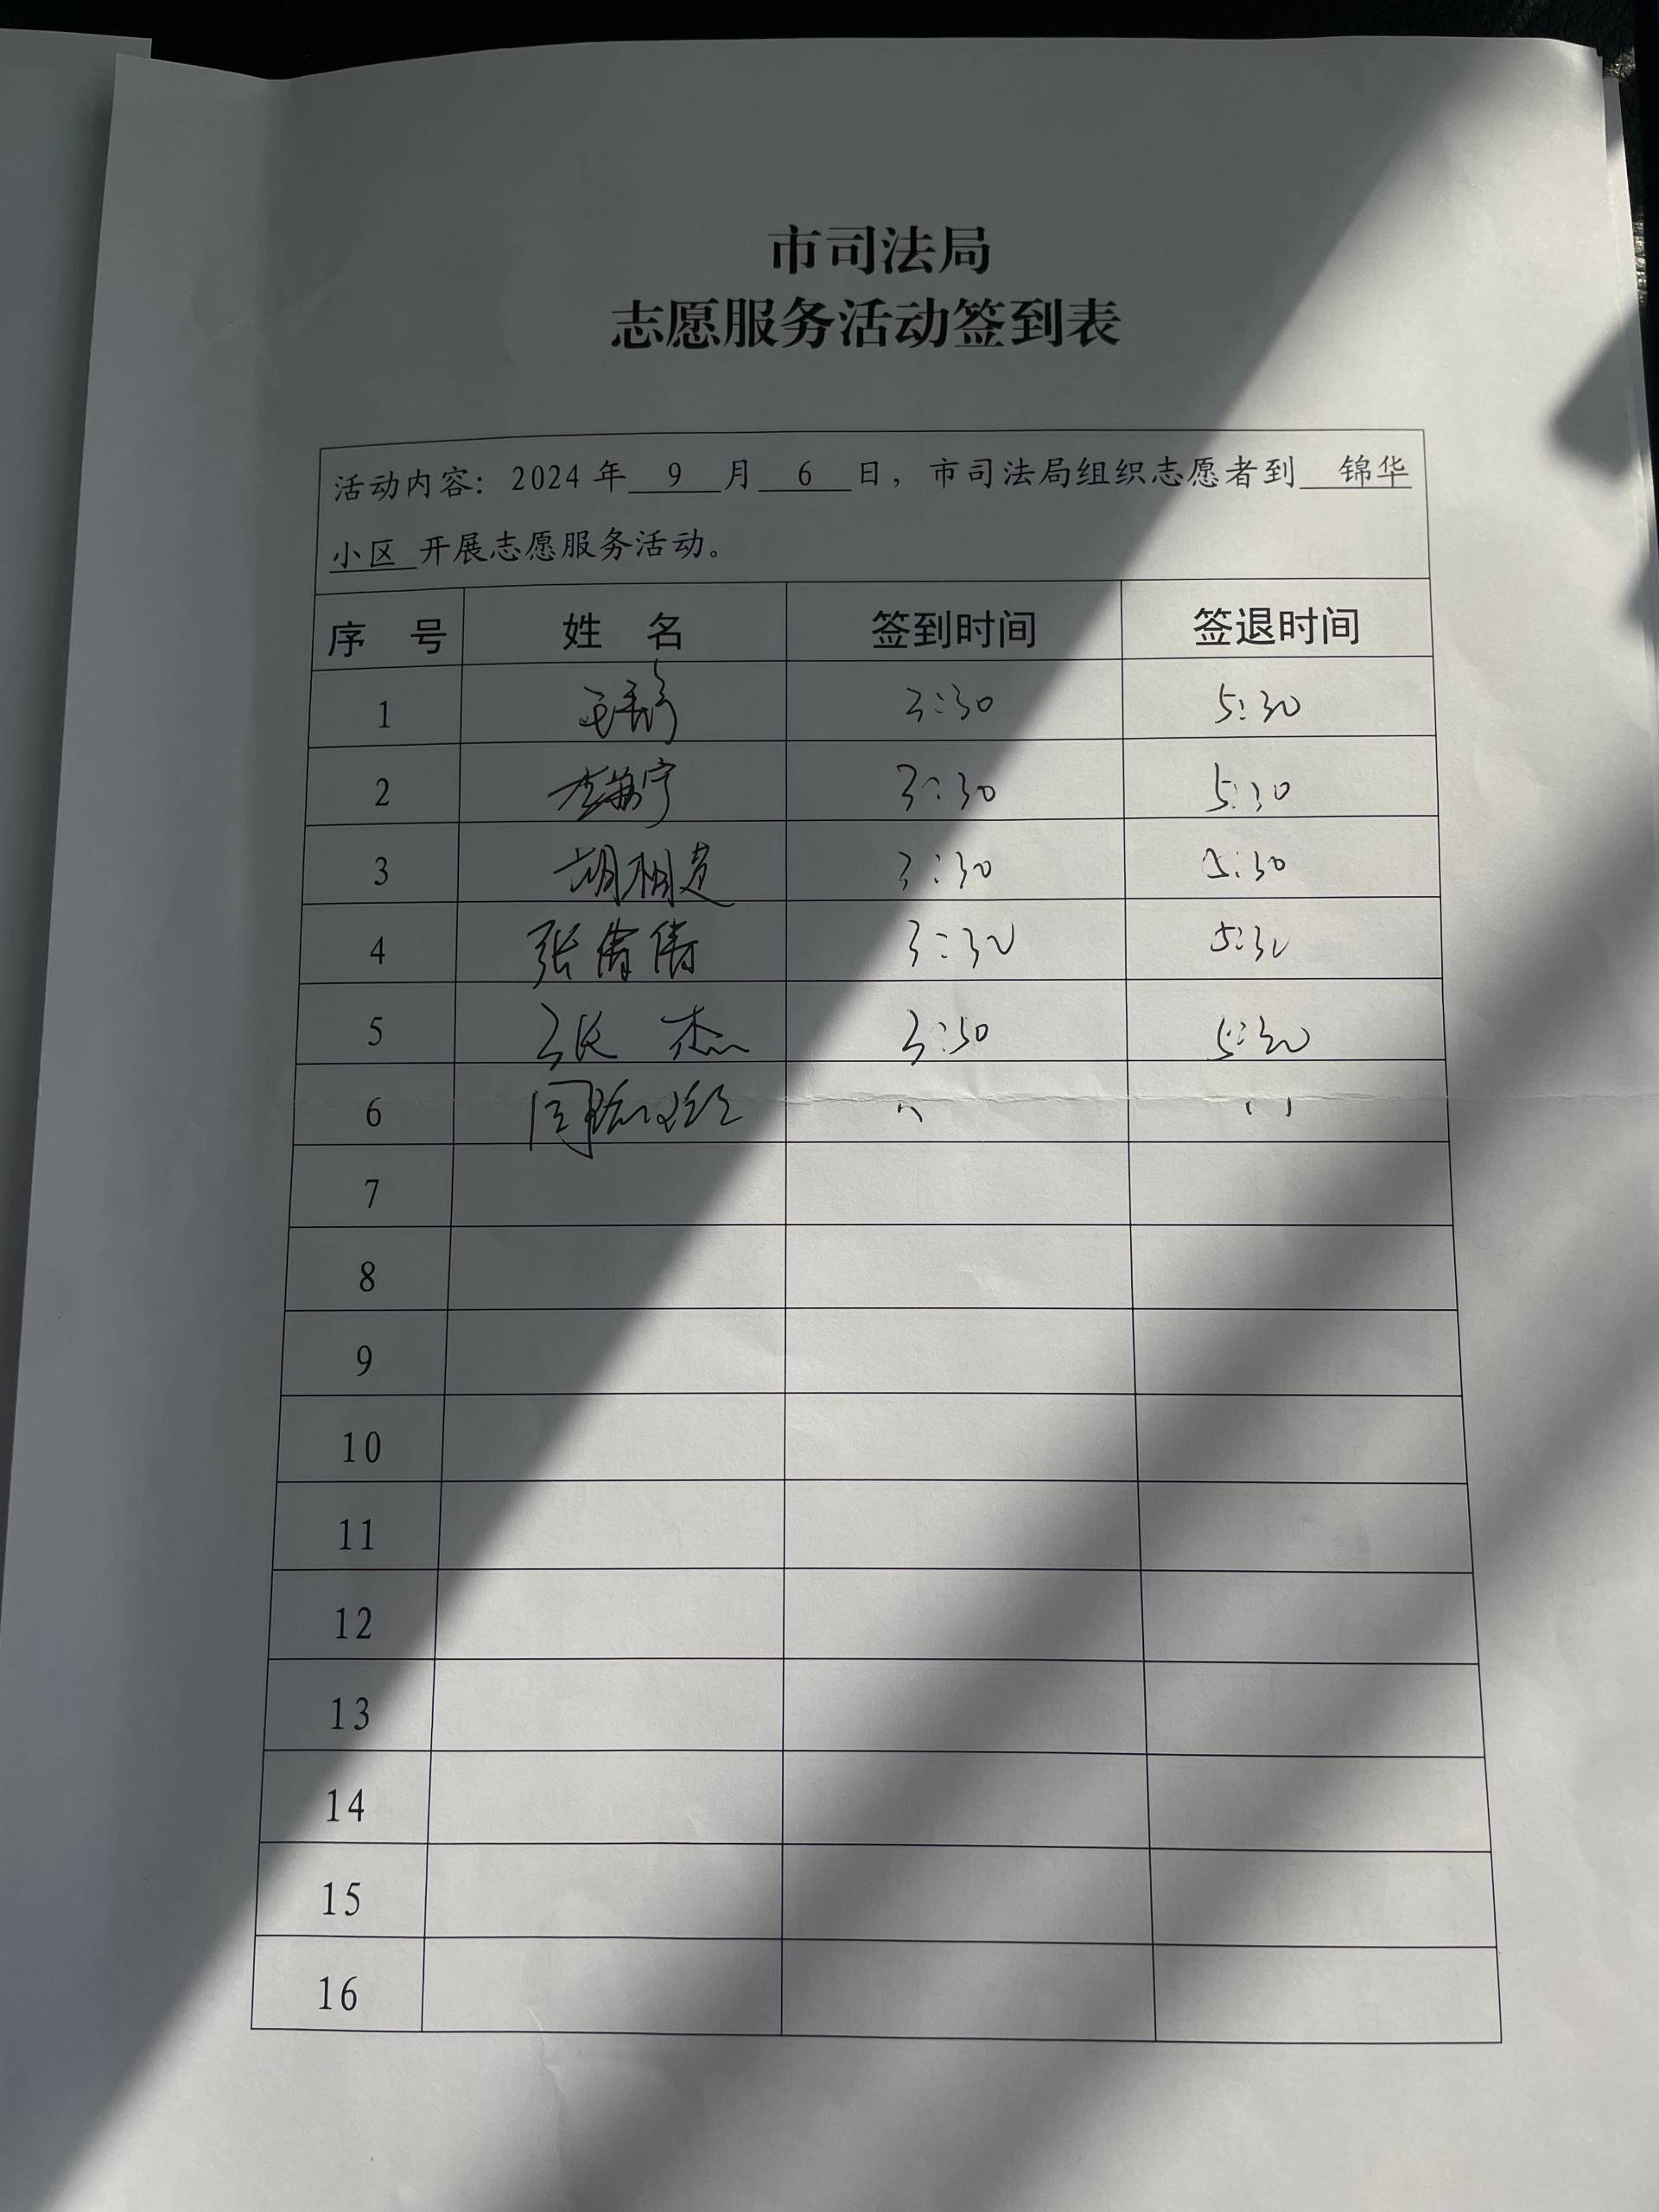 市司法局
志愿服务活动签到表
活动内容：2024 年 9 月 6 日，市司法局组织志愿者到 锦华
小区 开展志愿服务活动。
序 号 姓 名 签到时间 签退时间
1 3:30 5:30
2 3:30 5:30
3 3:30 5:30
4 张倩倩 3:30 5:30
5 张 杰 3:30 5:30
6 〃 〃
7
8
9
10
11
12
13
14
15
16